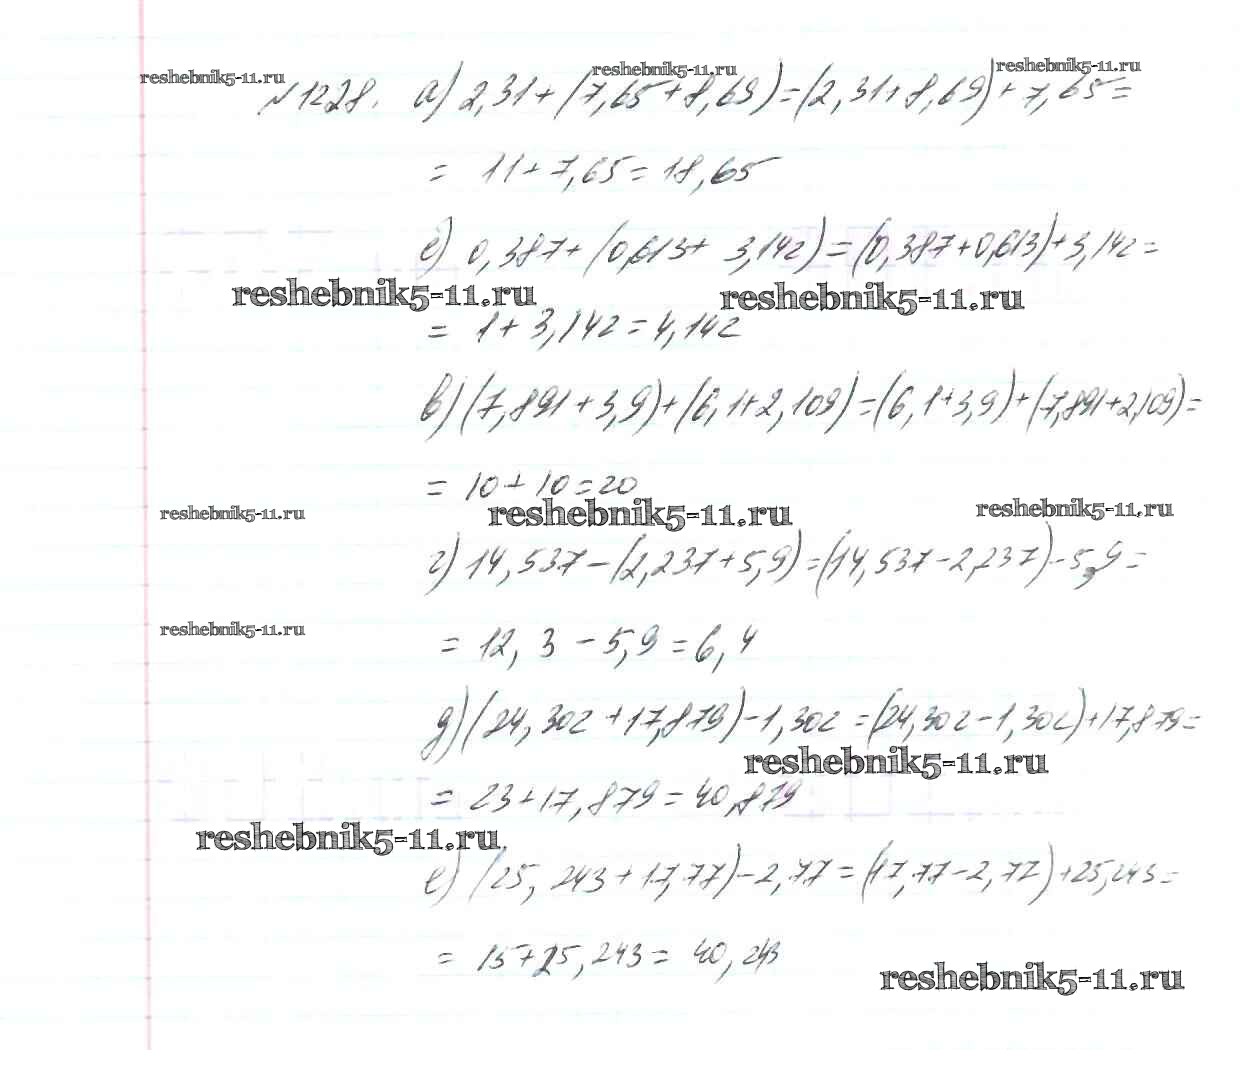 reshebnik5-11.ru reshebnik5-11.ru reshebnik5-11.ru
№1228. а) 2,31+(7,65+8,69)=(2,31+8,69)+7,65=
= 11+7,65=18,65
б) 0,387+(0,613+3,142)=(0,387+0,613)+3,142=
reshebnik5-11.ru reshebnik5-11.ru
= 1+3,142=4,142
в) (7,891+3,9)+(6,1+2,109)=(6,1+3,9)+(7,891+2,109)=
= 10+10=20
reshebnik5-11.ru reshebnik5-11.ru reshebnik5-11.ru
г) 14,537-(2,237+5,9)=(14,537-2,237)-5,9=
reshebnik5-11.ru
= 12,3-5,9=6,4
д) (24,302+17,879)-1,302=(24,302-1,302)+17,879=
reshebnik5-11.ru
= 23+17,879=40,879
reshebnik5-11.ru
е) (25,243+17,77)-2,77=(17,77-2,77)+25,243=
= 15+25,243=40,243
reshebnik5-11.ru